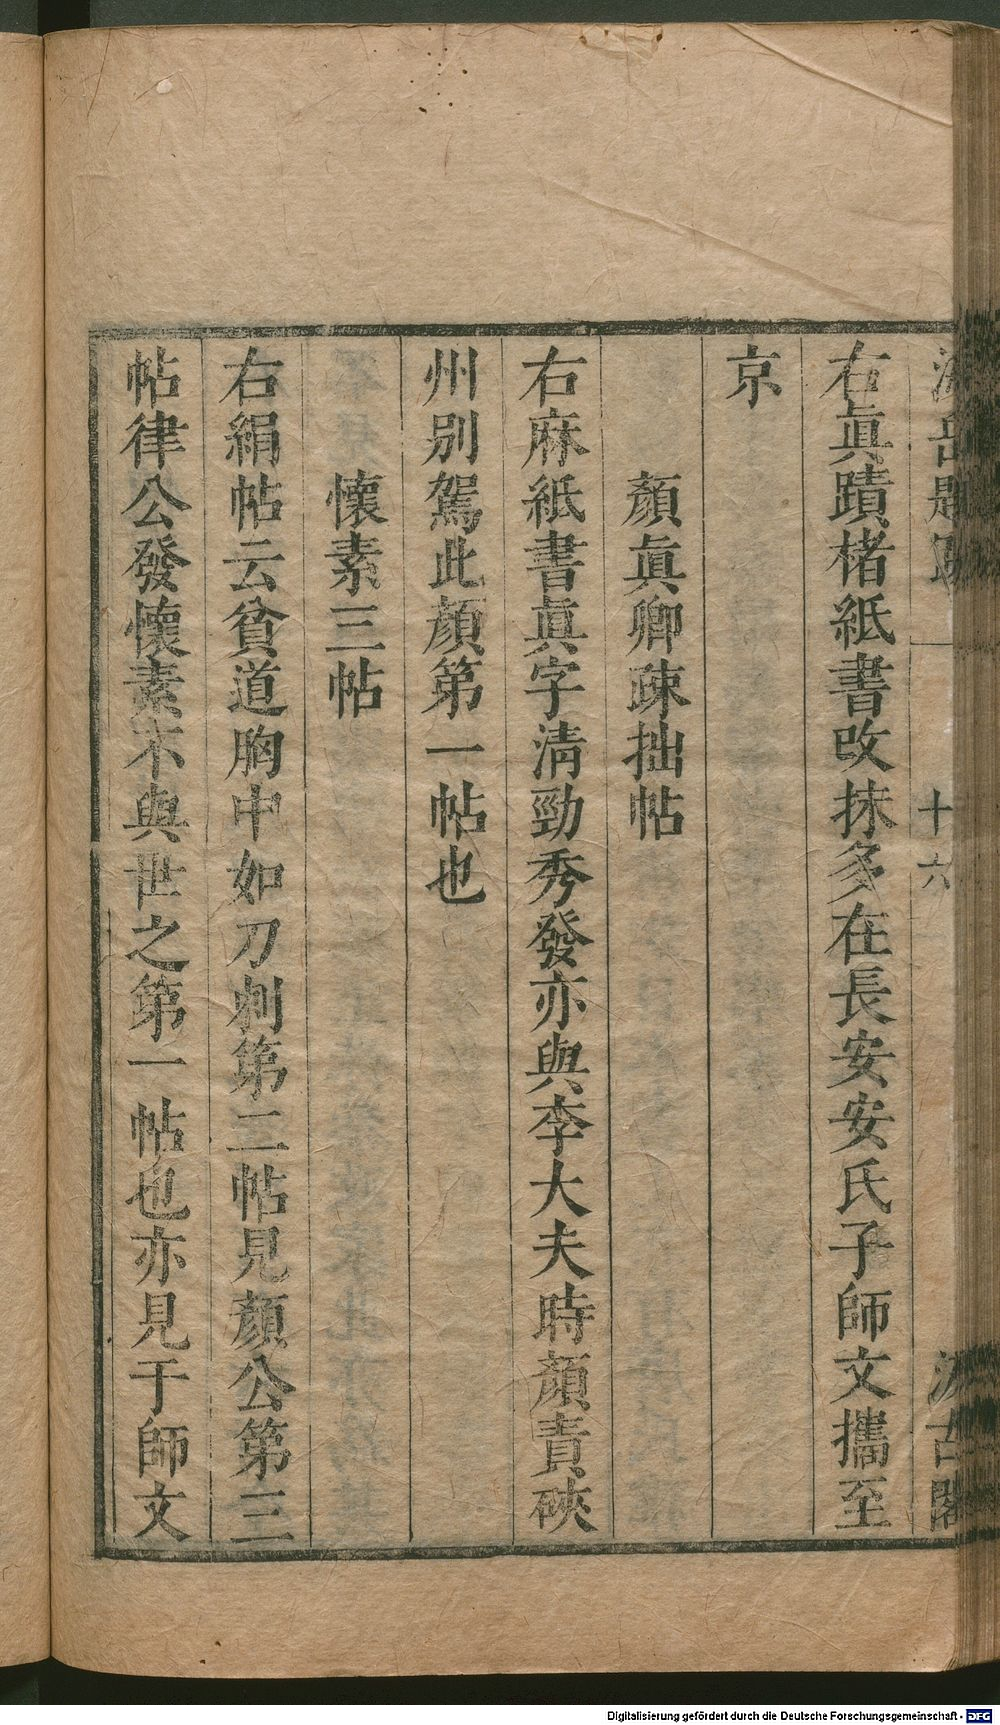 海岳題跋 十六 汲古閣
右眞蹟楮紙書改抹多在長安安氏子師文攜至
京
顏眞卿疎拙帖
右麻紙書眞字淸勁秀發亦與李大夫時顏責硤
州别駕此顏第一帖也
懷素三帖
右絹帖云貧道胸中如刀刺第二帖見顏公第三
帖律公發懷素不與世之第一帖也亦見于師文
Digitalisierung gefördert durch die Deutsche Forschungsgemeinschaft - DFG